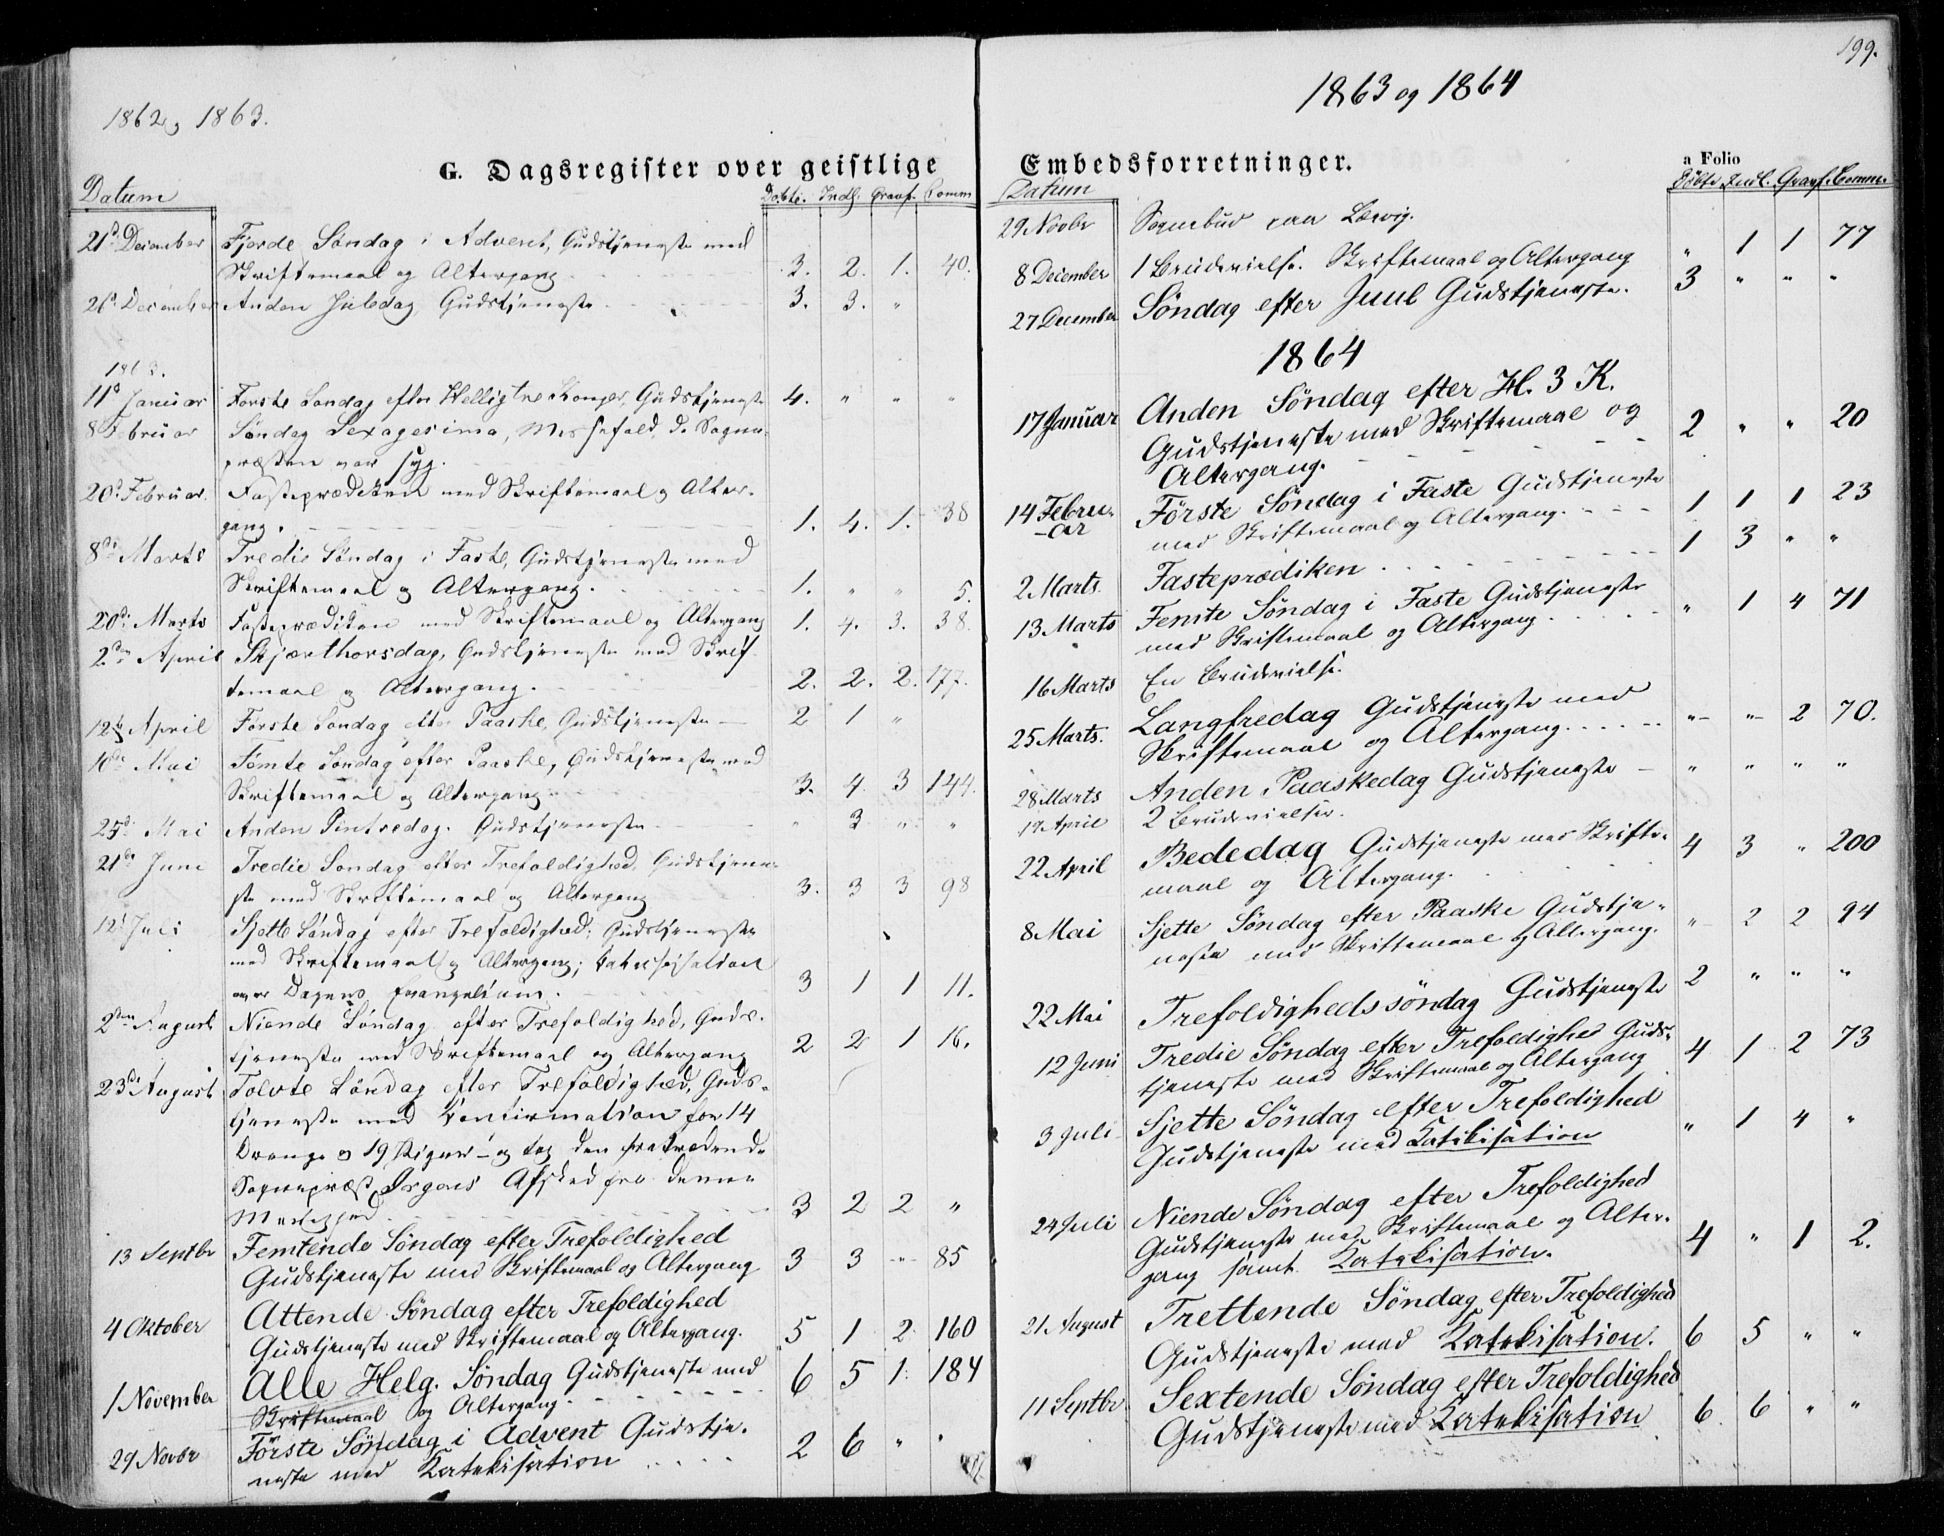 1862 og 1863.
G. Dagsregister over geistlige
Datum Døbte. Indl. Gravf. Comm.
21d December Fjerde Søndag i Advent, Gudstjeneste med
Skriftemaal og Altergang 3. 2. 1. 40.
26d December Anden Juledag Gudstjeneste 3. 3. "
1863.
11d Januar Første Søndag efter Hellig tre Konger, Gudstjeneste 4. " " "
8 Februar Søndag Sexagesima, Messefald, da Sogne-
præsten var syg.
20d Februar. Fasteprædiken med Skriftemaal og Alter-
gang. 1. 4. 1. 38
8de Marts Tredie Søndag i Faste, Gudstjeneste med
Skriftemaal og Altergang. 1. " " 5.
20de Marts Fasteprædiken med Skriftemaal og Altergang 1. 4. 3. 38.
2den April Skjærthorsdag, Gudstjeneste med Skrif-
temaal og Altergang. 2. 2. 2. 177.
12te April Første Søndag efter Paaske, Gudstjeneste 2 1 "
10de Mai Femte Søndag efter Paaske, Gudstjeneste med
Skriftemaal og Altergang 3. 4. 3 144.
25de Mai Anden Pintsedag. Gudstjeneste " 3 " "
21de Juni Tredie Søndag efter Trefoldighed, Gudstjene-
ste med Skriftemaal og Altergang 3. 3 3 98
12te Juli Sjette Søndag efter Trefoldighed; Gudstjeneste
med Skriftemaal og Altergang;
over Dagens Evangelium. 3 1 1 11.
2den August Niende Søndag efter Trefoldighed, Guds-
tjeneste med Skriftemaal og Altergang 2 2 1 16.
23de August Tolvte Søndag efter Trefoldighed, Guds-
tjeneste med Confirmation for 14
Drenge og 19 Piger – og tog den fratrædende
Sognepræst Ørgens Afsked fra denne
Menighed. 3 2 2 "
13 Septbr Femtende Søndag efter Trefoldighed
Gudstjeneste med Skriftemaal og Altergang 3 3 " 85
4 Oktober Attende Søndag efter Trefoldighed
Gudstjeneste med Skriftemaal og Altergang. 5 1 2 160
1 November Alle Helg. Søndag Gudstjeneste med
Skriftemaal og Altergang. 6 5 1. 184
29 Novbr Första Søndag i Advent Gudstje-
neste med Katekisation 2 6 " "
199.
1863 og 1864
Embedsforretninger.
a Folio
Datum Döbte Indl. Gravf. Comm.
29 Novbr Sognebud paa Larvig.
8 December 1 Brudevielse. Skriftemaal og Altergang " 1 1 77
27 December Søndag efter Juul Gudstjeneste. 3 " " "
1864
17 Januar Anden Søndag efter H. 3 K.
Gudstjeneste med Skriftemaal og
Altergang. 2 " " 20
14 Febru-
-ar Förste Søndag i Faste Gudstjeneste
med Skriftemaal og Altergang. 1 1 1 23
2 Marts. Fasteprædiken 1 3 " "
13 Marts Femte Søndag i Faste Gudstjeneste
med Skriftemaal og Altergang. " 1 4 71
16 Marts En Brudevielse.
25 Marts. Langfredag Gudstjeneste med
Skriftemaal og Altergang. " " 2 70.
28 Marts Anden Paaskedag Gudstjeneste " " " "
April 2 Brudevielser.
22 April Bededag Gudstjeneste med Skrifte-
maal og Altergang. 4 3 " 200
8 Mai Sjette Søndag efter Paaske Gudstje-
neste med Skriftemaal og Altergang. " 2 2 94
22 Mai Trefoldighedssöndag Gudstjeneste 2 " " "
12 Juni Tredie Søndag efter Trefoldighed Guds-
tjeneste med Skriftemaal og Altergang 4 1 2 73
3 Juli Sjette Søndag efter Trefoldighed
Gudstjeneste med Katekisation " 1 4 "
24 Juli Niende Søndag efter Trefoldighed
Gudstjeneste med Skriftemaal og Alter-
gang samt Katekisation. 4 " 1 2.
21 August Trettende Søndag efter Trefoldighed
Gudstjeneste med Katekisation. 6 5 " "
11 Septbr Sextende Søndag efter Trefoldighed
Gudstjeneste med Katekisation 6 6 " "